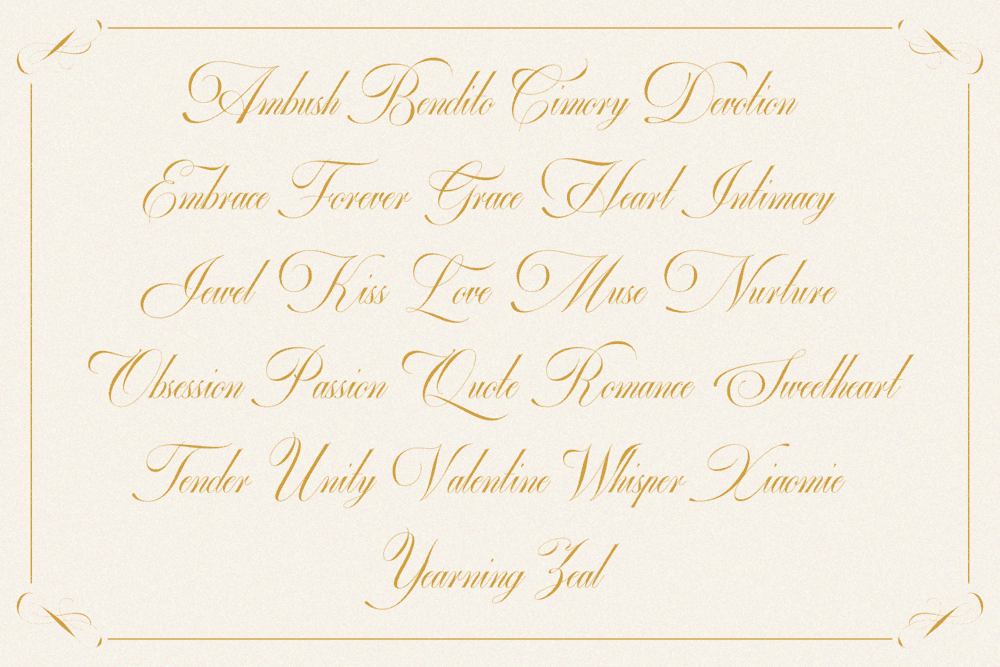 Ambush Bendito Cimory Devotion
Embrace Forever Grace Heart Intimacy
Jewel Kiss Love Muse Nurture
Obsession Passion Quote Romance Sweetheart
Tender Unity Valentine Whisper Xiaomie
Yearning Zeal